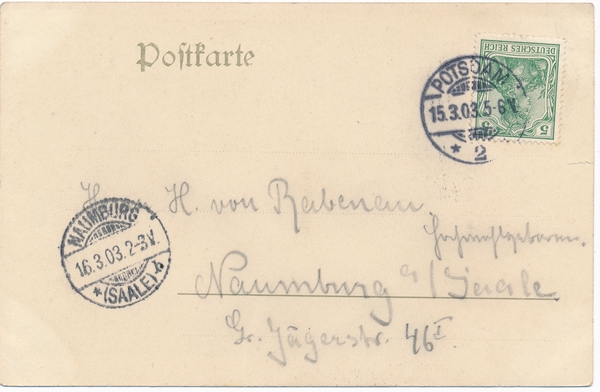 Postkarte
DEUTSCHES REICH
5 5
POTSDAM
15.3.03.5-6V.
* 2
H. H. von Rabenau
Hochwohlgeboren.
Naumburg a/Saale
Gr. Jägerstr. 46 I
NAUMBURG
16.3.03.2-3V.
* (SAALE) b